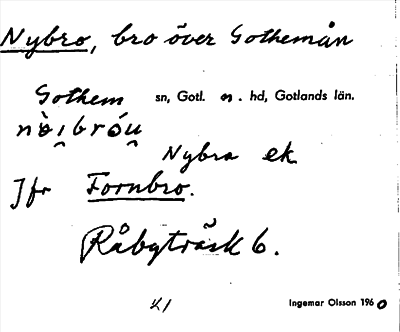 Nybro, bro över Gothemån
Gothem sn, Gotl. n. hd, Gotlands län.
nȯ̀i̯bróu̯
Nybro ek
Jfr Fornbro.
Råbyträsk 6.
41
Ingemar Olsson 1960